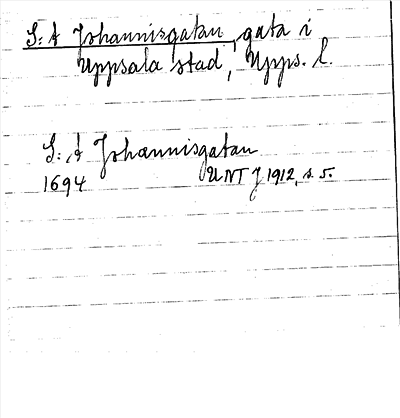 S:t Johannisgatan, gata i
Uppsala stad, Upps. l.
S:t Johannisgatan
1694 UNT J 1912, s. 5.